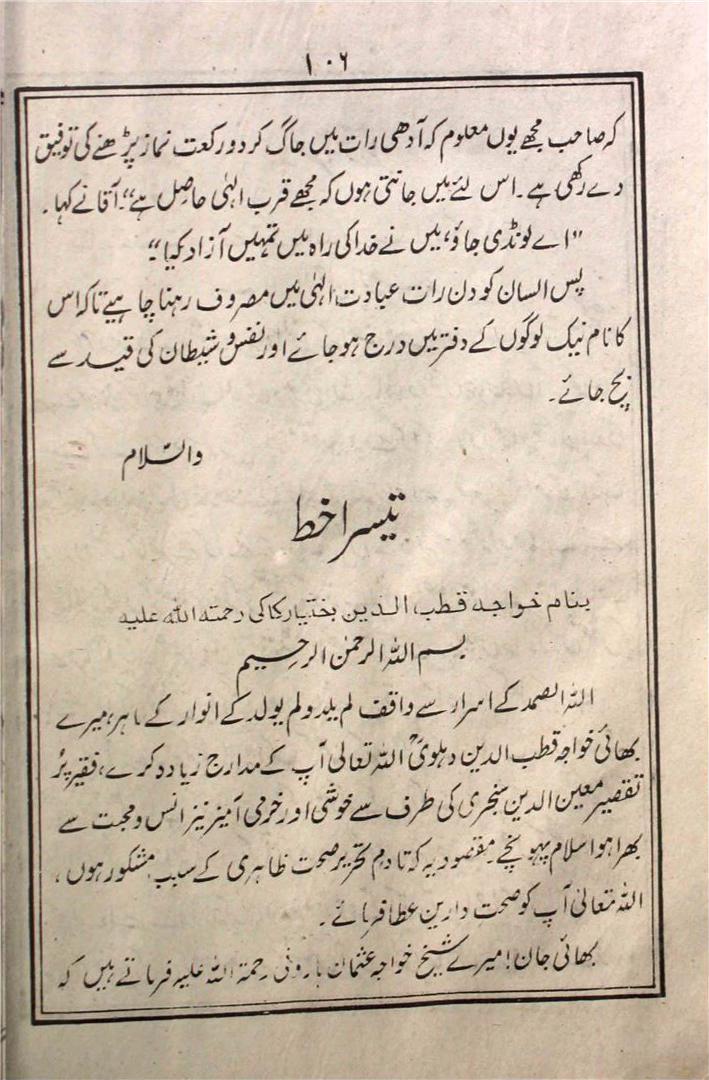 ۱۰۶
کہ صاحب مجھے یوں معلوم کہ آدھی رات میں جاگ کر دو رکعت نماز پڑھنے کی توفیق
دے رکھی ہے۔ اس لئے میں جانتی ہوں کہ مجھے قرب الٰہی حاصل ہے“۔ آقا نے کہا۔
”اے لونڈی جاؤ، میں نے خدا کی راہ میں تمہیں آزاد کیا“۔
پس انسان کو دن رات عبادت الٰہی میں مصروف رہنا چاہیے تاکہ اس
کا نام نیک لوگوں کے دفتر میں درج ہو جائے اور نفس و شیطان کی قید سے
بچ جائے۔
والسّلام
تیسرا خط
بنام خواجہ قطب الدین بختیار کاکی رحمتہ اللہ علیہ
بسم اللہ الرحمٰن الرحیم
اللہ الصمد کے اسرار سے واقف لم یلد ولم یولد کے انوار کے ماہر، میرے
بھائی خواجہ قطب الدین دہلویؒ اللہ تعالیٰ آپ کے مدارج زیادہ کرے، فقیر پُر
تقصیر معین الدین سنجری کی طرف سے خوشی اور خرمی آمیز نیز انس و محبت سے
بھرا ہوا سلام پہونچے۔ مقصود یہ کہ تادم تحریر صحت ظاہری کے سبب مشکور ہوں،
اللہ تعالیٰ آپ کو صحت دارین عطا فرمائے۔
بھائی جان! میرے شیخ خواجہ عثمان ہارونی رحمۃ اللہ علیہ فرماتے ہیں کہ